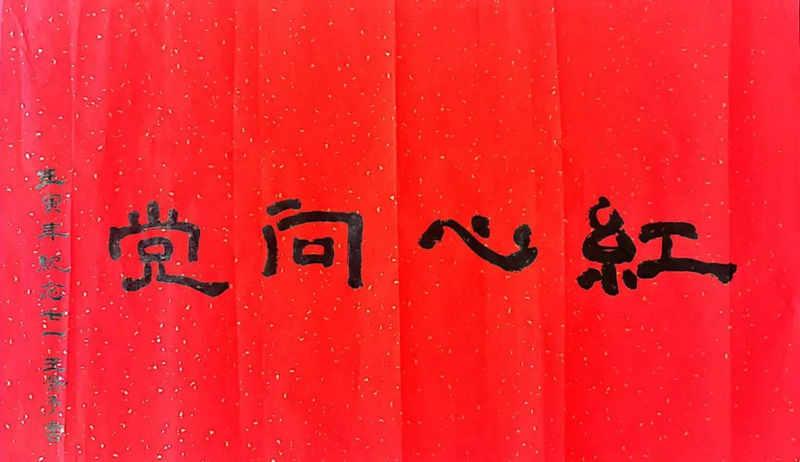 紅心向党
壬寅年紀念七一 王子書